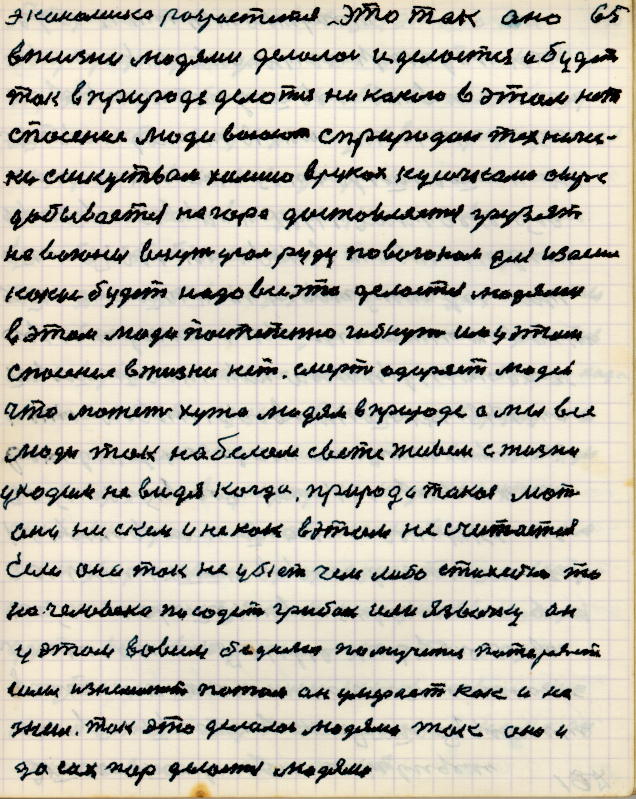 экономика разростется. Это так оно 65
в жизни людями делалос и делается и будет
так в природе делотся никакого в этом нет
спосение люди воюют с природаю техниче-
ки с искуством химию в руках кусочками сырье
добывается на гара доставляется грузят
на вагоны везут угол руду по вогонам для
какие будет надо все это делается людями
в этом люди постепено гибнут им у этом
спосение в жизни нет. смерть одиряет людей
что может хужа людям в природе а мы все
люди так на белом свете живем с жизни
уходим не видя когда, природа такая мат
она ни скем и некак в этом не считается
Если она так не убет чем либо стихейно то
на человека посодит грибок или язвочку он
у этом вовсем бедняга помучится потеряет
силы изнеможет потом он умирает как и не
жил. так это делалос людями так оно и
до сих пор делается людями